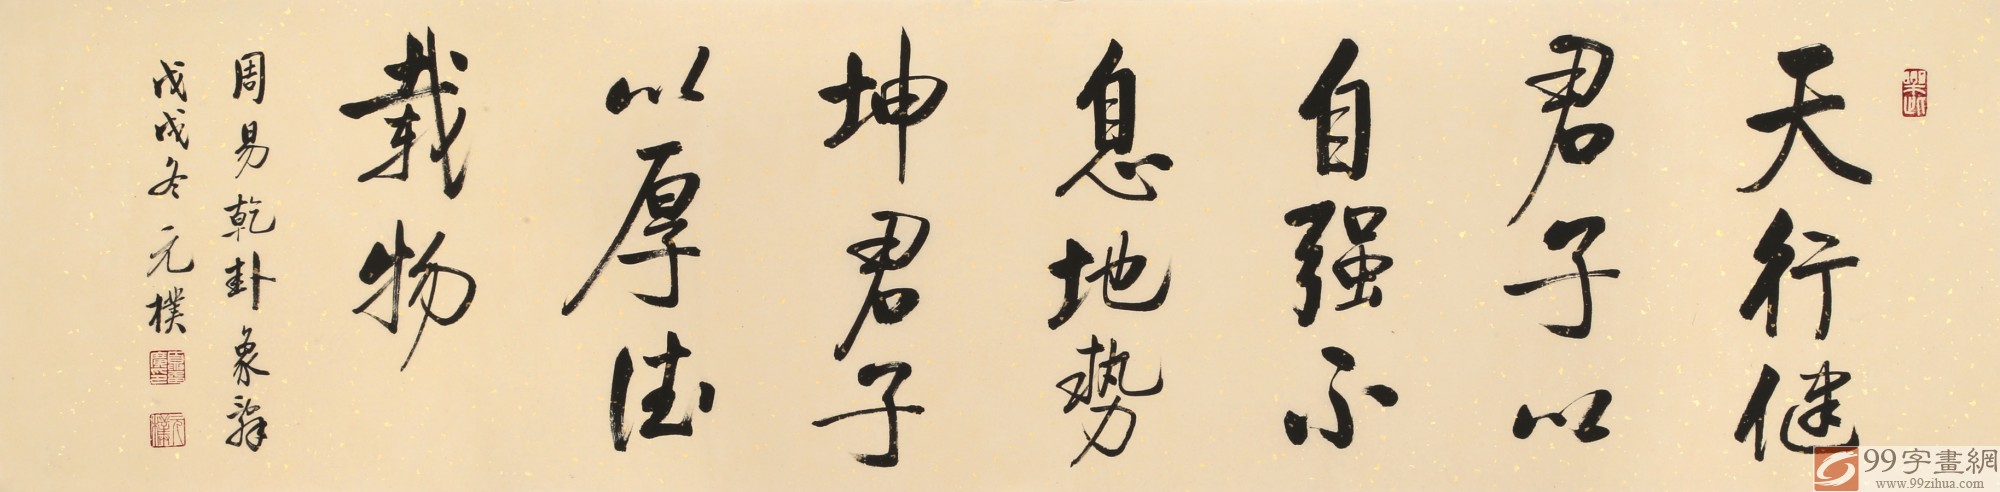 天行健
君子以
自强不
息地势
坤君子
以厚德
载物
周易乾卦象辞
戊戌冬元樸
99字畫網
www.99zihua.com